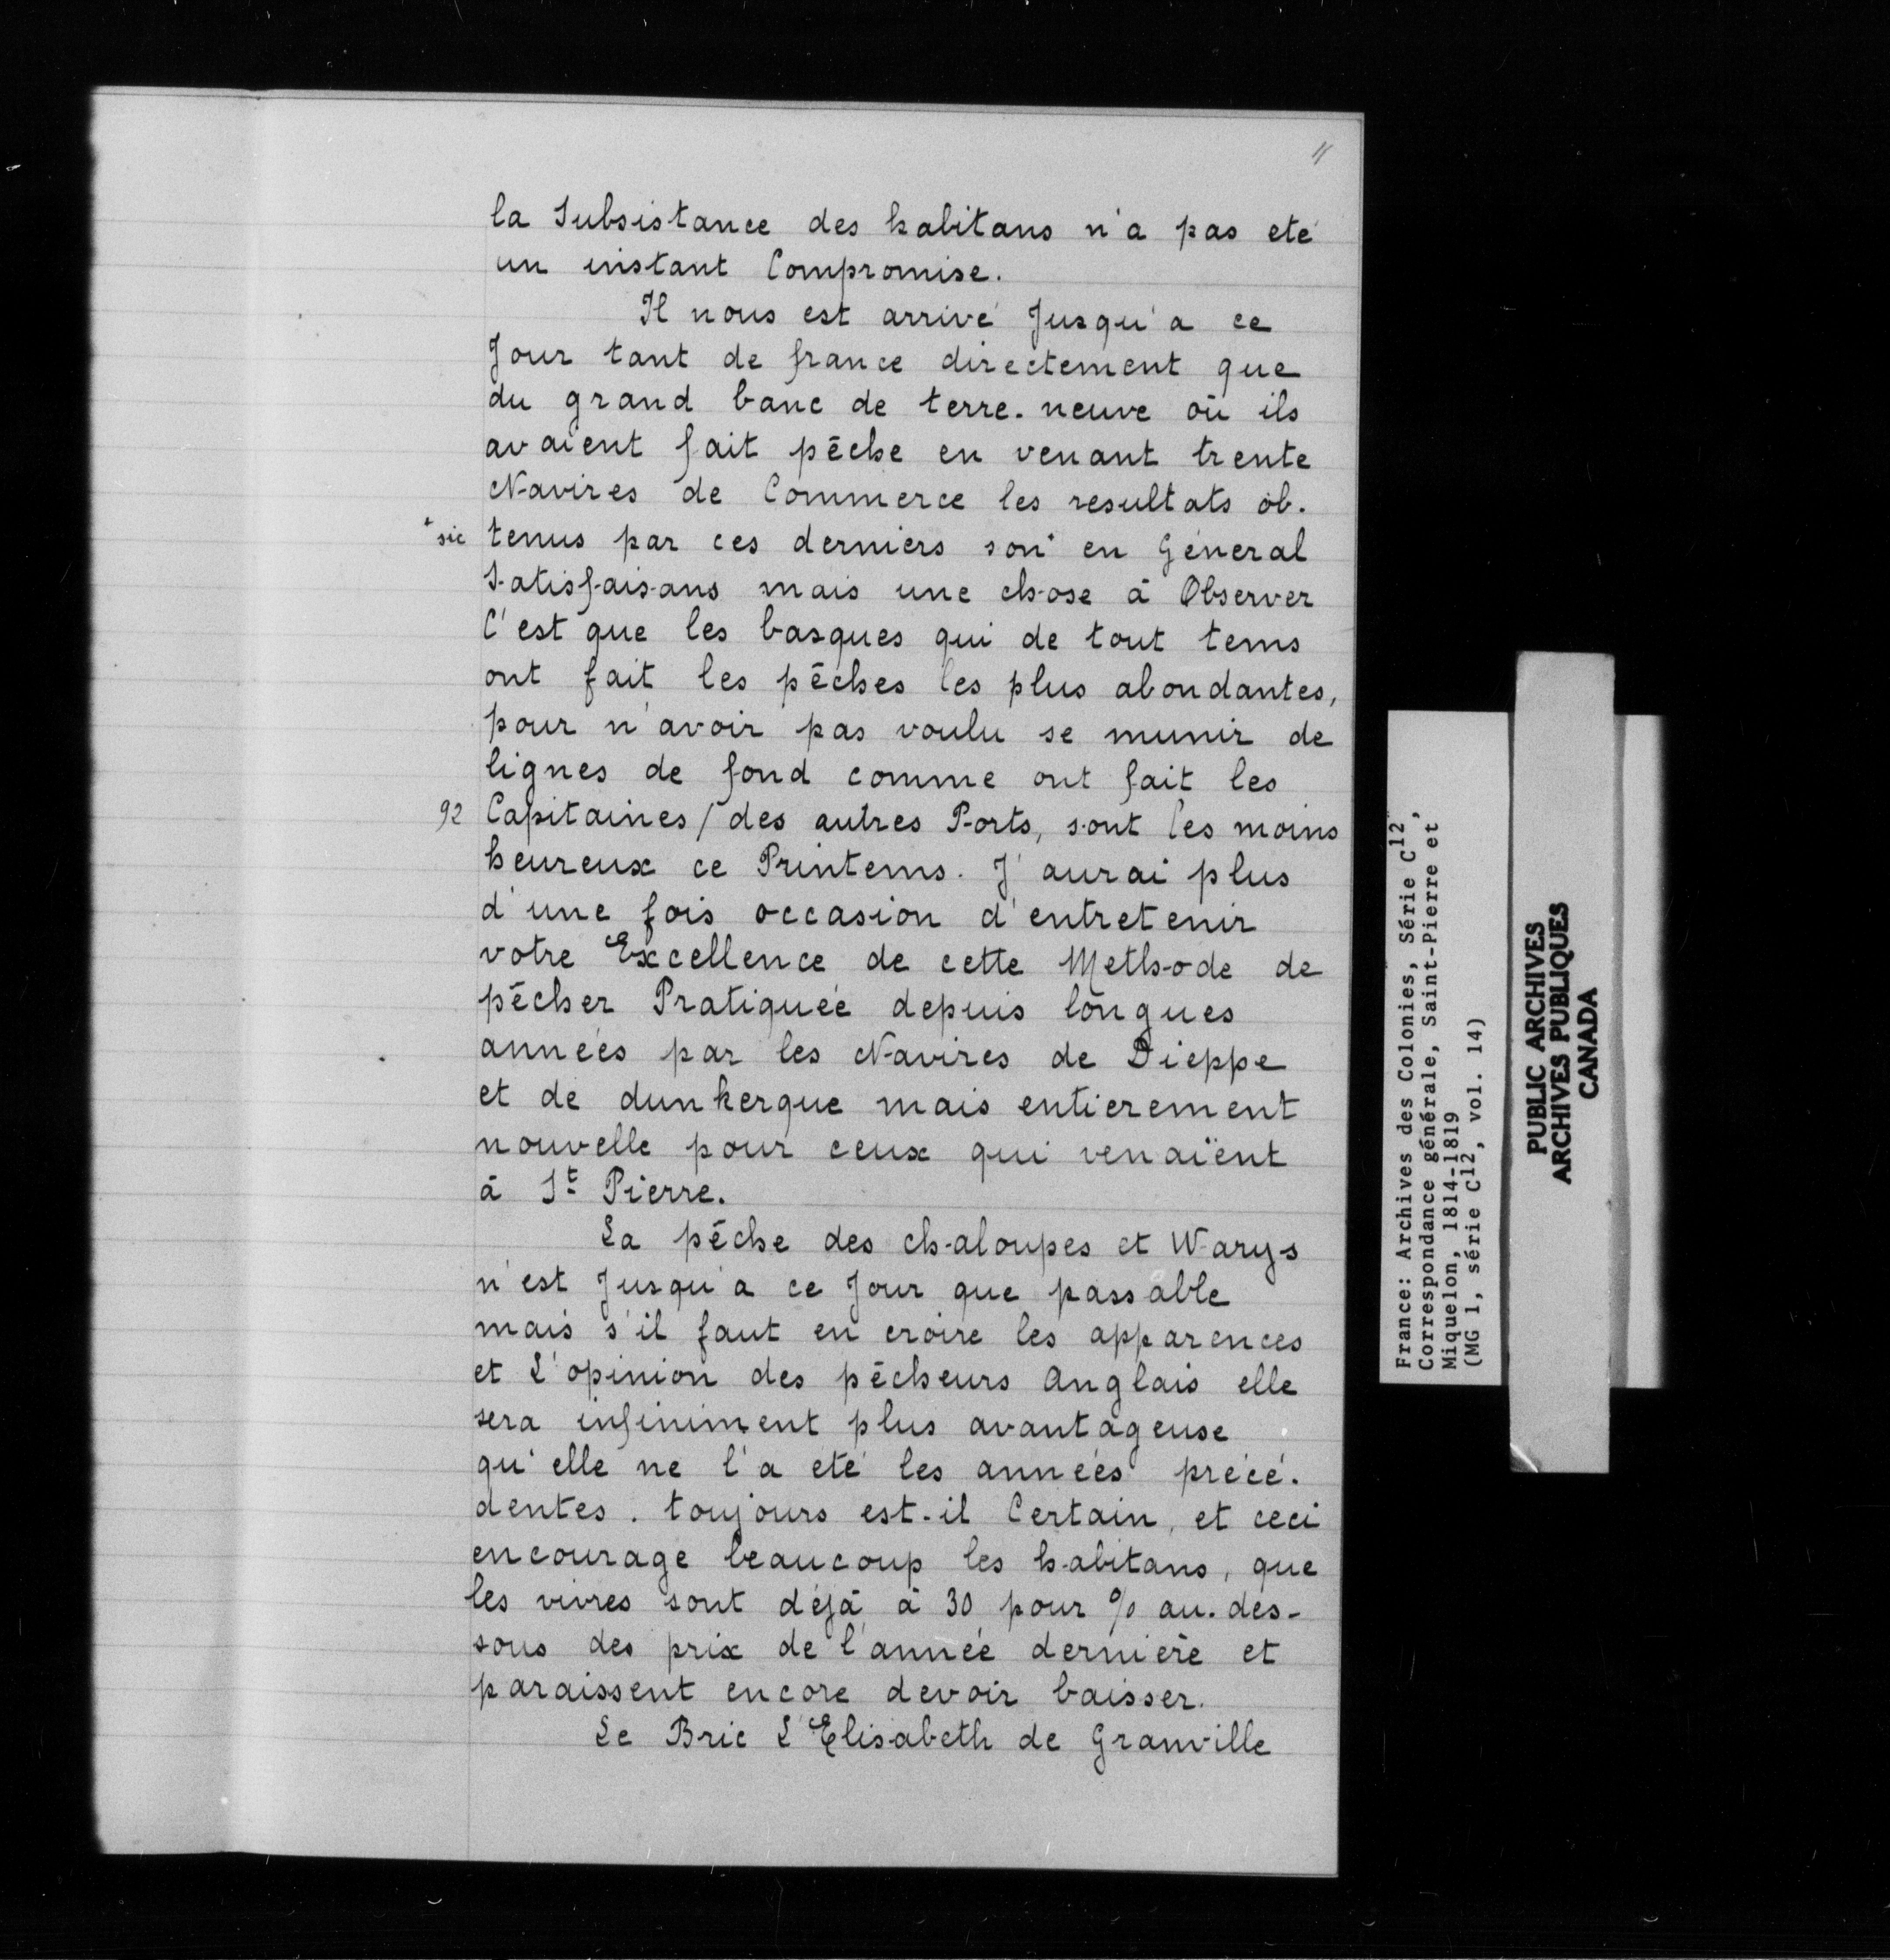 11
la Subsistance des habitans n'a pas eté
un instant Compromise.
Il nous est arrivé Jusqu'a ce
Jour tant de france directement que
du grand banc de terre-neuve où ils
avaient fait pêche en venant trente
Navires de Commerce les resultats ob-
* sic tenus par ces derniers son* en Géneral
Satisfaisans mais une chose à Observer
C'est que les basques qui de tout tems
ont fait les pêches les plus abondantes,
pour n'avoir pas voulu se munir de
lignes de fond comme ont fait les
92 Capitaines / des autres Ports, sont les moins
heureux ce Printems. J'aurai plus
d'une fois occasion d'entretenir
votre Excellence de cette Methode de
pêcher Pratiquée depuis longues
années par les Navires de Dieppe
et de dunkerque mais entierement
nouvelle pour ceux qui venaient
à St Pierre.
La pêche des chaloupes et Warys
n'est Jusqu'a ce Jour que passable
mais s'il faut en croire les apparences
et L'opinion des pêcheurs Anglais elle
sera infiniment plus avantageuse
qu'elle ne l'a eté les années précé-
dentes. toujours est-il Certain, et ceci
encourage beaucoup les habitans, que
les vivres sont déjà à 30 pour % au-des-
sous des prix de l'année derniere et
paraissent encore devoir baisser.
Le Bric L'Elisabeth de Granville
France: Archives des Colonies, Série C12,
Correspondance générale, Saint-Pierre et
Miquelon, 1814-1819
(MG 1, série C12, vol. 14)
PUBLIC ARCHIVES
ARCHIVES PUBLIQUES
CANADA